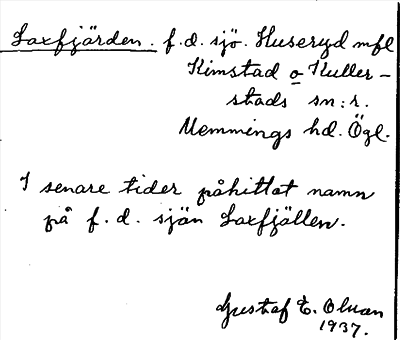 Laxfjärden. f.d. sjö. Huseryd mfl
Kimstad o Kuller-
stads sn:r.
Memmings hd. Ögl.
I senare tider påhittat namn
på f.d. sjön Laxfjällen.
Gustaf E. Olsson
1937.